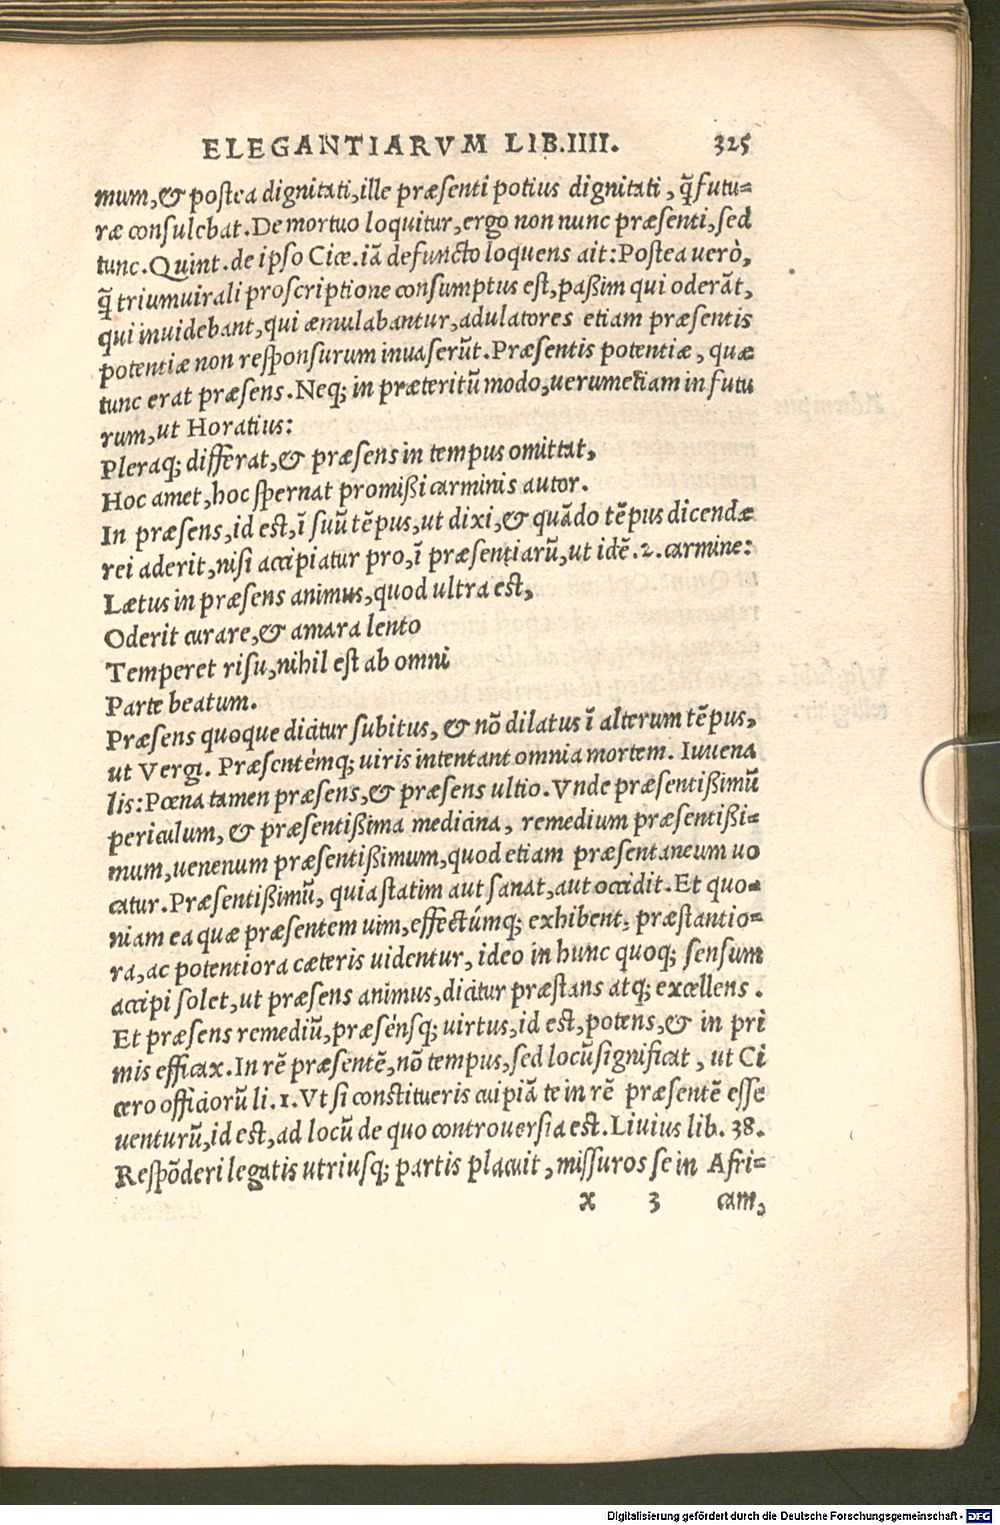 ELEGANTIARVM LIB.IIII. 325
mum,& postea dignitati,ille præsenti potius dignitati, q̃ futu=
ræ consulebat. De mortuo loquitur,ergo non nunc præsenti,sed
tunc. Quint. de ipso Cice. iã defuncto loquens ait: Postea uerò,
q̃ triumuirali proscriptione consumptus est, paßim qui oderãt,
qui inuidebant,qui æmulabantur,adulatores etiam præsentis
potentiæ non responsurum inuaserũt. Præsentis potentiæ, quæ
tunc erat præsens. Neq; in præteritũ modo,uerumetiam in futu
rum,ut Horatius:
Pleraq; differat,& præsens in tempus omittat,
Hoc amet,hoc spernat promißi carminis autor.
In præsens,id est,ĩ suũ tẽpus,ut dixi,& quãdo tẽpus dicendæ
rei aderit,nisi accipiatur pro,ĩ præsentiarũ,ut idẽ.2.carmine:
Lætus in præsens animus,quod ultra est,
Oderit curare,& amara lento
Temperet risu,nihil est ab omni
Parte beatum.
Præsens quoque dicitur subitus, & nõ dilatus ĩ alterum tẽpus,
ut Vergi. Præsentémq; uiris intentant omnia mortem. Iuuena
lis: Pœna tamen præsens,& præsens ultio. Vnde præsentißimũ
periculum, & præsentißima medicina, remedium præsentißi=
mum,uenenum præsentißimum,quod etiam præsentaneum uo
catur. Præsentißimũ, quia statim aut sanat,aut occidit. Et quo=
niam ea quæ præsentem uim,effectúmq; exhibent, præstantio=
ra,ac potentiora cæteris uidentur, ideo in hunc quoq; sensum
accipi solet,ut præsens animus,dicitur præstans atq; excellens.
Et præsens remediũ,præsénsq; uirtus,id est,potens,& in pri
mis efficax. In rẽ præsentẽ,nõ tempus,sed locũ significat, ut Ci
cero officiorũ li.1. Vt si constitueris cuipiã te in rẽ præsentẽ esse
uenturũ,id est,ad locũ de quo controuersia est. Liuius lib. 38.
Respõderi legatis utriusq; partis placuit, missuros se in Afri=
x 3 cam,
Digitalisierung gefördert durch die Deutsche Forschungsgemeinschaft - DFG